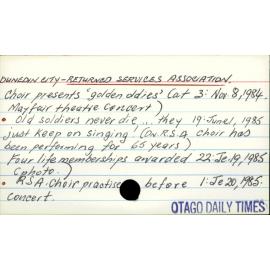 DUNEDIN CITY - RETURNED SERVICES ASSOCIATION.
Choir presents 'golden oldies' (at 3: Nov. 8, 1984.
Mayfair theatre concert)
• Old soldiers never die... they 19: June 1, 1985
just keep on singing! (Dn. R.S.A. choir has
been performing for 65 years)
Four life memberships awarded 22: Je. 19, 1985
(photo.)
• R.S.A. Choir practises before 1: Je 20, 1985.
concert.
OTAGO DAILY TIMES